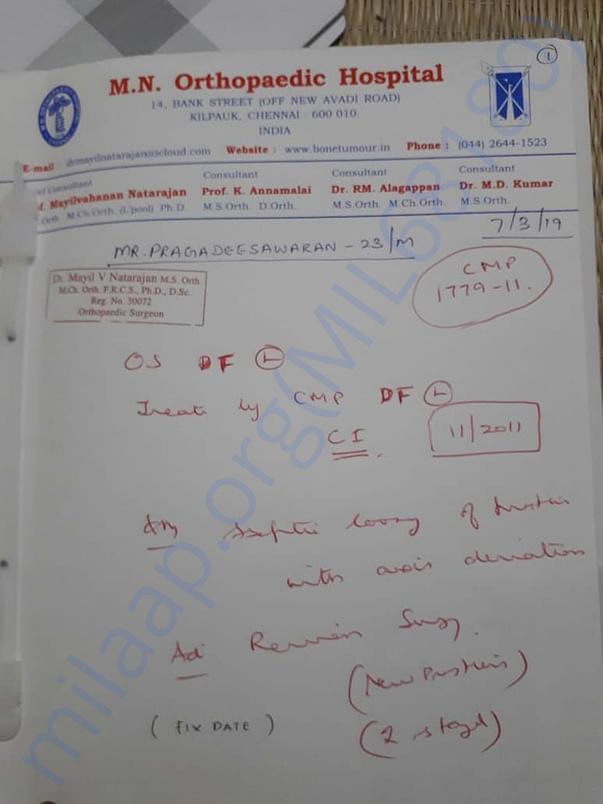 1
M.N. Orthopaedic Hospital
14, BANK STREET (OFF NEW AVADI ROAD)
KILPAUK, CHENNAI - 600 010.
INDIA
E-mail : drmayilnatarajan@icloud.com Website : www.bonetumour.in Phone : (044) 2644-1523
Consultant
Mayilvahanan Natarajan
Orth. M.Ch.Orth. (L'pool) Ph.D.
Consultant
Prof. K. Annamalai
M.S.Orth. D.Orth.
Consultant
Dr. RM. Alagappan
M.S.Orth. M.Ch.Orth.
Consultant
Dr. M.D. Kumar
M.S.Orth.
7/3/19
MR. PRAGADEESAWARAN - 23/M
Dr. Mayil V Natarajan M.S. Orth.
M.Ch. Orth. F.R.C.S., Ph.D., D.Sc.
Reg. No. 30072
Orthopaedic Surgeon
CMP
1779-11.
OS DF L
by CMP DF L
CI
11/2011
of
with axis deviation
Ad Revision
(New
(FIX DATE)
(2 staged)
milaap.org(MIL681